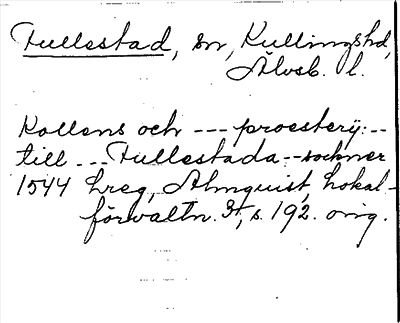 Fullestad, sn, Kullingshd,
Älvsb. l.
Kollens och --- proesterij: --
till --- Fullestada -- sockner
1544 Lreg, Almquist, Lokal-
förvaltn. 3:1, s. 192. orig.